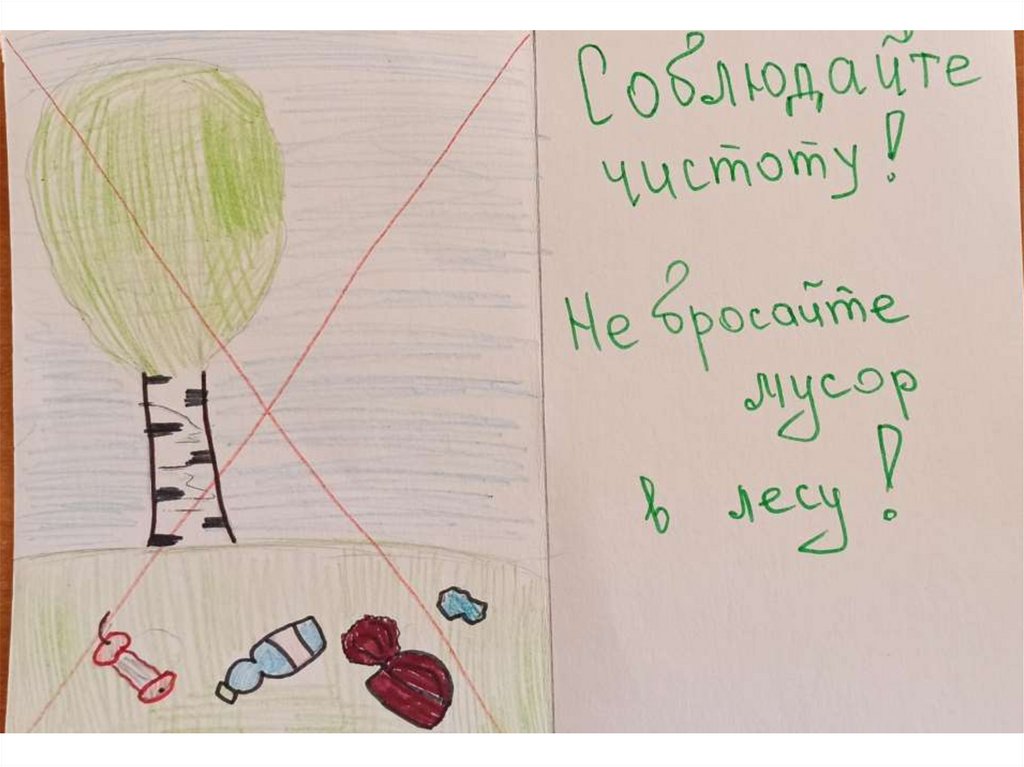 Соблюдайте
чистоту!
Не бросайте
мусор
в лесу!